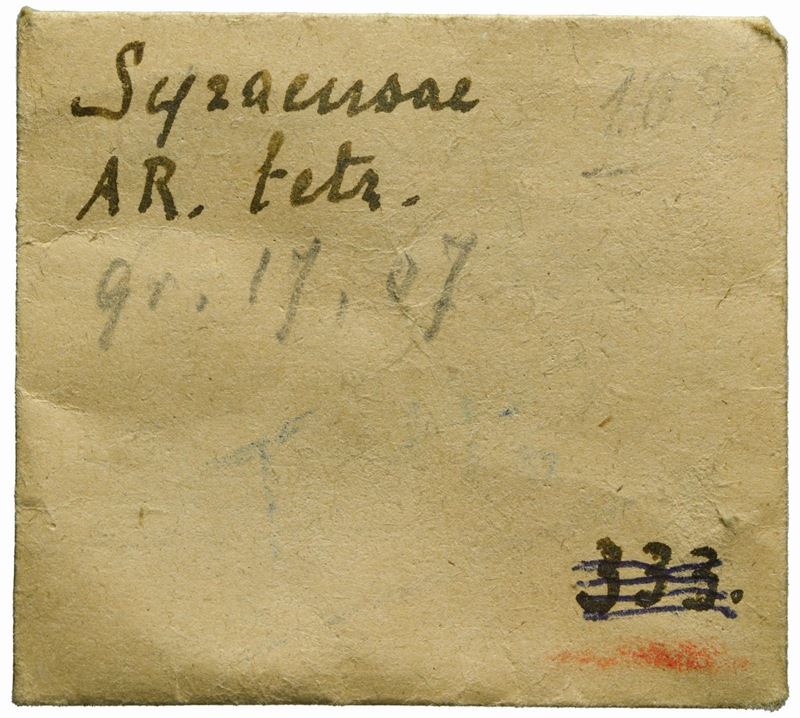 Syracusae
AR. tetr.
gr. 17,07
333.